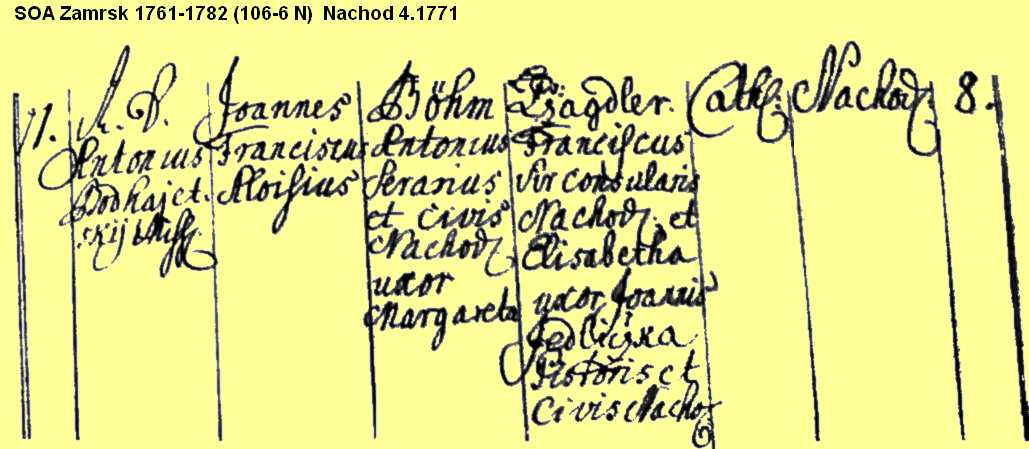 SOA Zamrsk 1761-1782 (106-6 N) Nachod 4.1771
11. A. V. Joannes Böhm Cath. Nachod. 8.
Antonius Franciscus Antonius Franciscus
Podhajct. Aloisius Serarius Vir consularis
skij et civis Nachod. et
Nachod. Elisabetha
uxor uxor Joannis
Margareta Jedliczka
Pistoris et
Civis Nacho